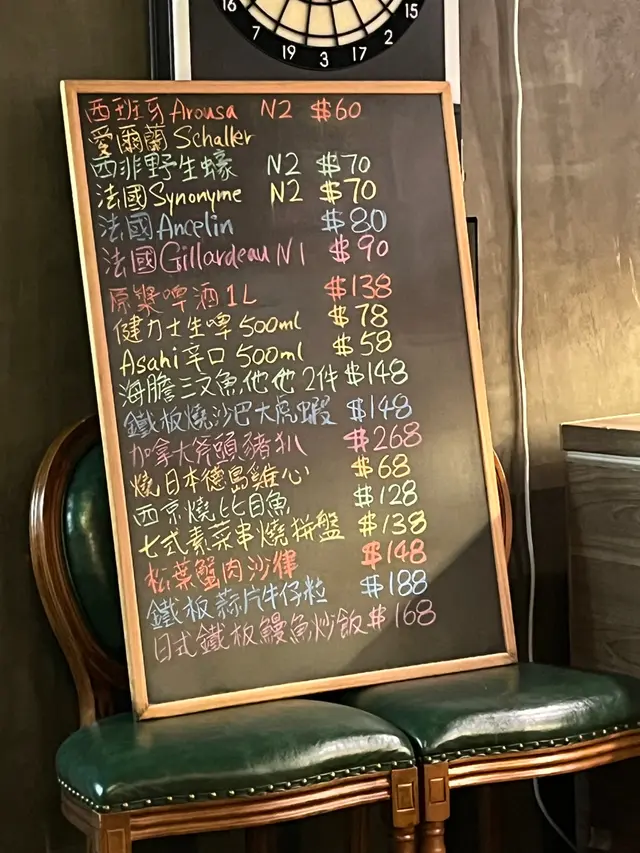 16 7 19 3 17 2 15
西班牙 Arousa N2 $60
愛爾蘭 Schaller
西非野生蠔 N2 $70
法國 Synonyme N2 $70
法國 Ancelin $80
法國 Gillardeau N1 $90
原漿啤酒 1L $138
健力士生啤 500ml $78
Asahi 辛口 500ml $58
海膽三文魚他他 2件 $148
鐵板燒沙巴大虎蝦 $148
加拿大斧頭豬扒 $268
燒日本德島雞心 $68
西京燒比目魚 $128
七式素菜串燒拼盤 $138
松葉蟹肉沙律 $148
鐵板蒜片牛仔粒 $188
日式鐵板鰻魚炒飯 $168